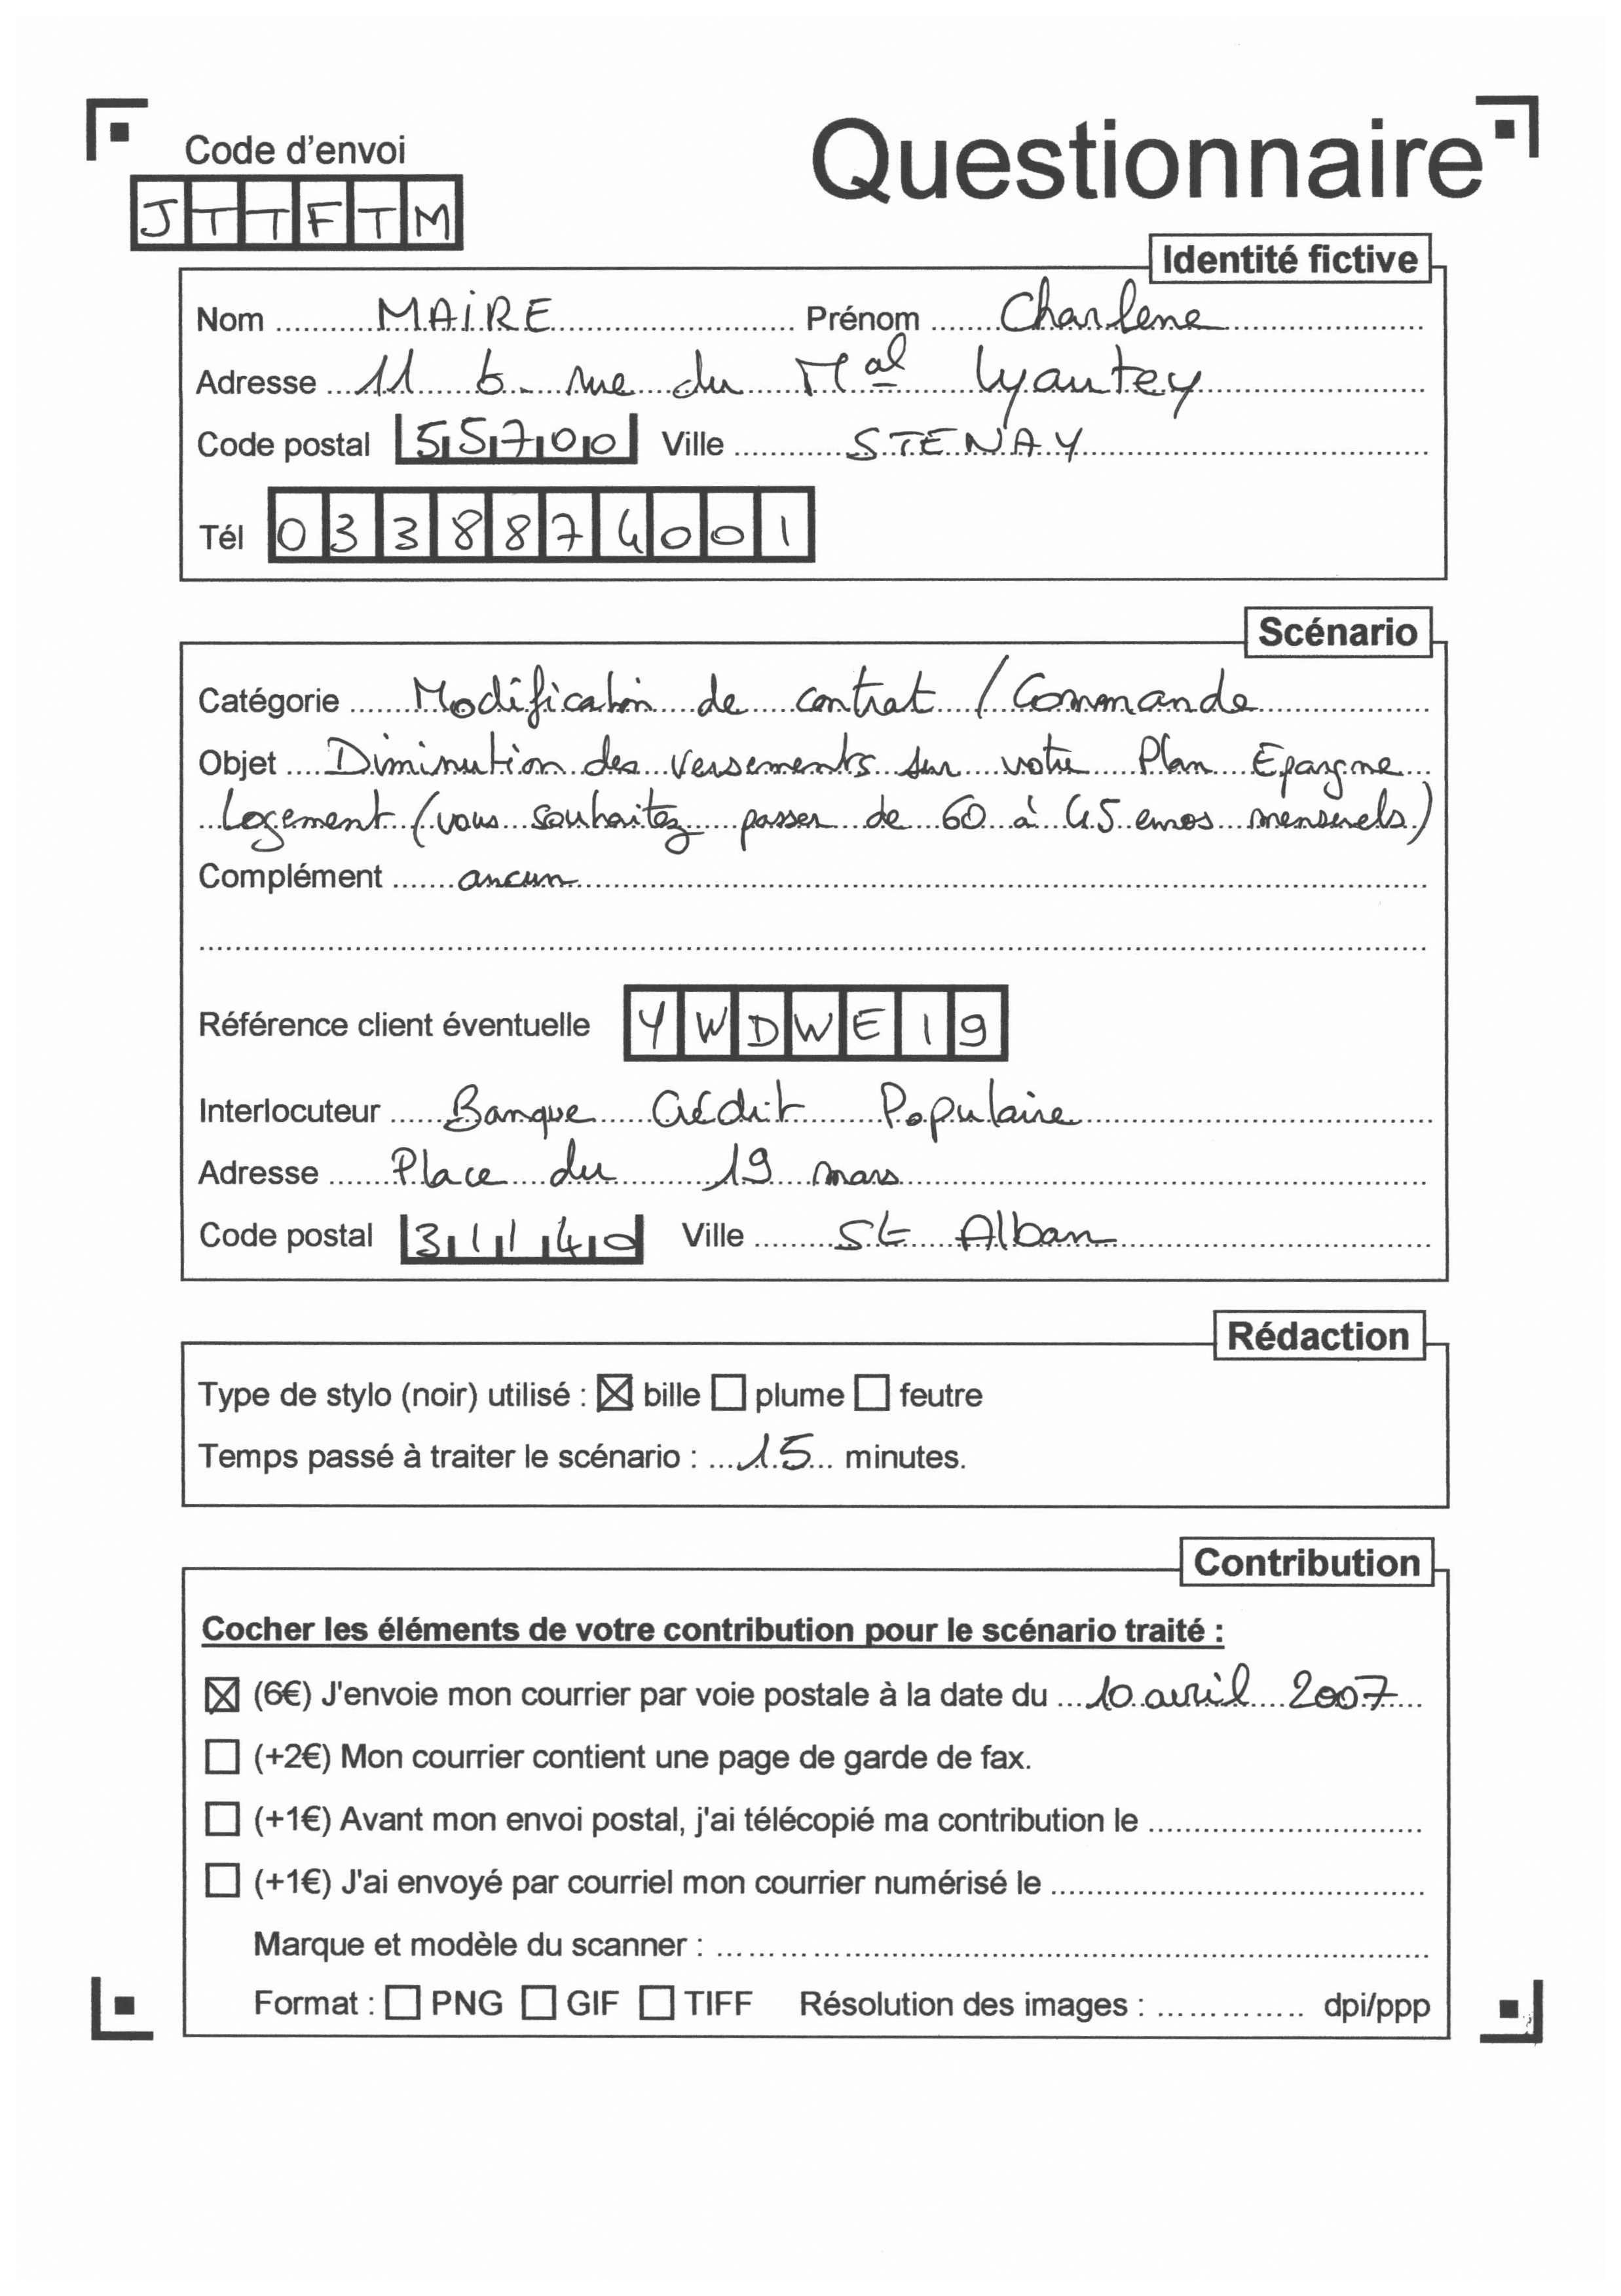 Code d'envoi
Questionnaire
JTTFTM
Identité fictive
Nom MAIRE Prénom Charlene
Adresse 11 b. rue du Mal Lyautey
Code postal 55700 Ville STENAY
Tél 0338874001
Scénario
Catégorie Modification de contrat / Commande
Objet Diminution des versements sur votre Plan Epargne
Logement (vous souhaitez passer de 60 à 45 euros mensuels)
Complément aucun
Référence client éventuelle YWDWE19
Interlocuteur Banque Crédit Populaire
Adresse Place du 19 mars
Code postal 31140 Ville St Alban
Rédaction
Type de stylo (noir) utilisé : ☒ bille ☐ plume ☐ feutre
Temps passé à traiter le scénario : 15 minutes.
Contribution
Cocher les éléments de votre contribution pour le scénario traité :
☒ (6€) J'envoie mon courrier par voie postale à la date du 10 avril 2007
☐ (+2€) Mon courrier contient une page de garde de fax.
☐ (+1€) Avant mon envoi postal, j'ai télécopié ma contribution le
☐ (+1€) J'ai envoyé par courriel mon courrier numérisé le
Marque et modèle du scanner :
Format : ☐ PNG ☐ GIF ☐ TIFF Résolution des images : dpi/ppp